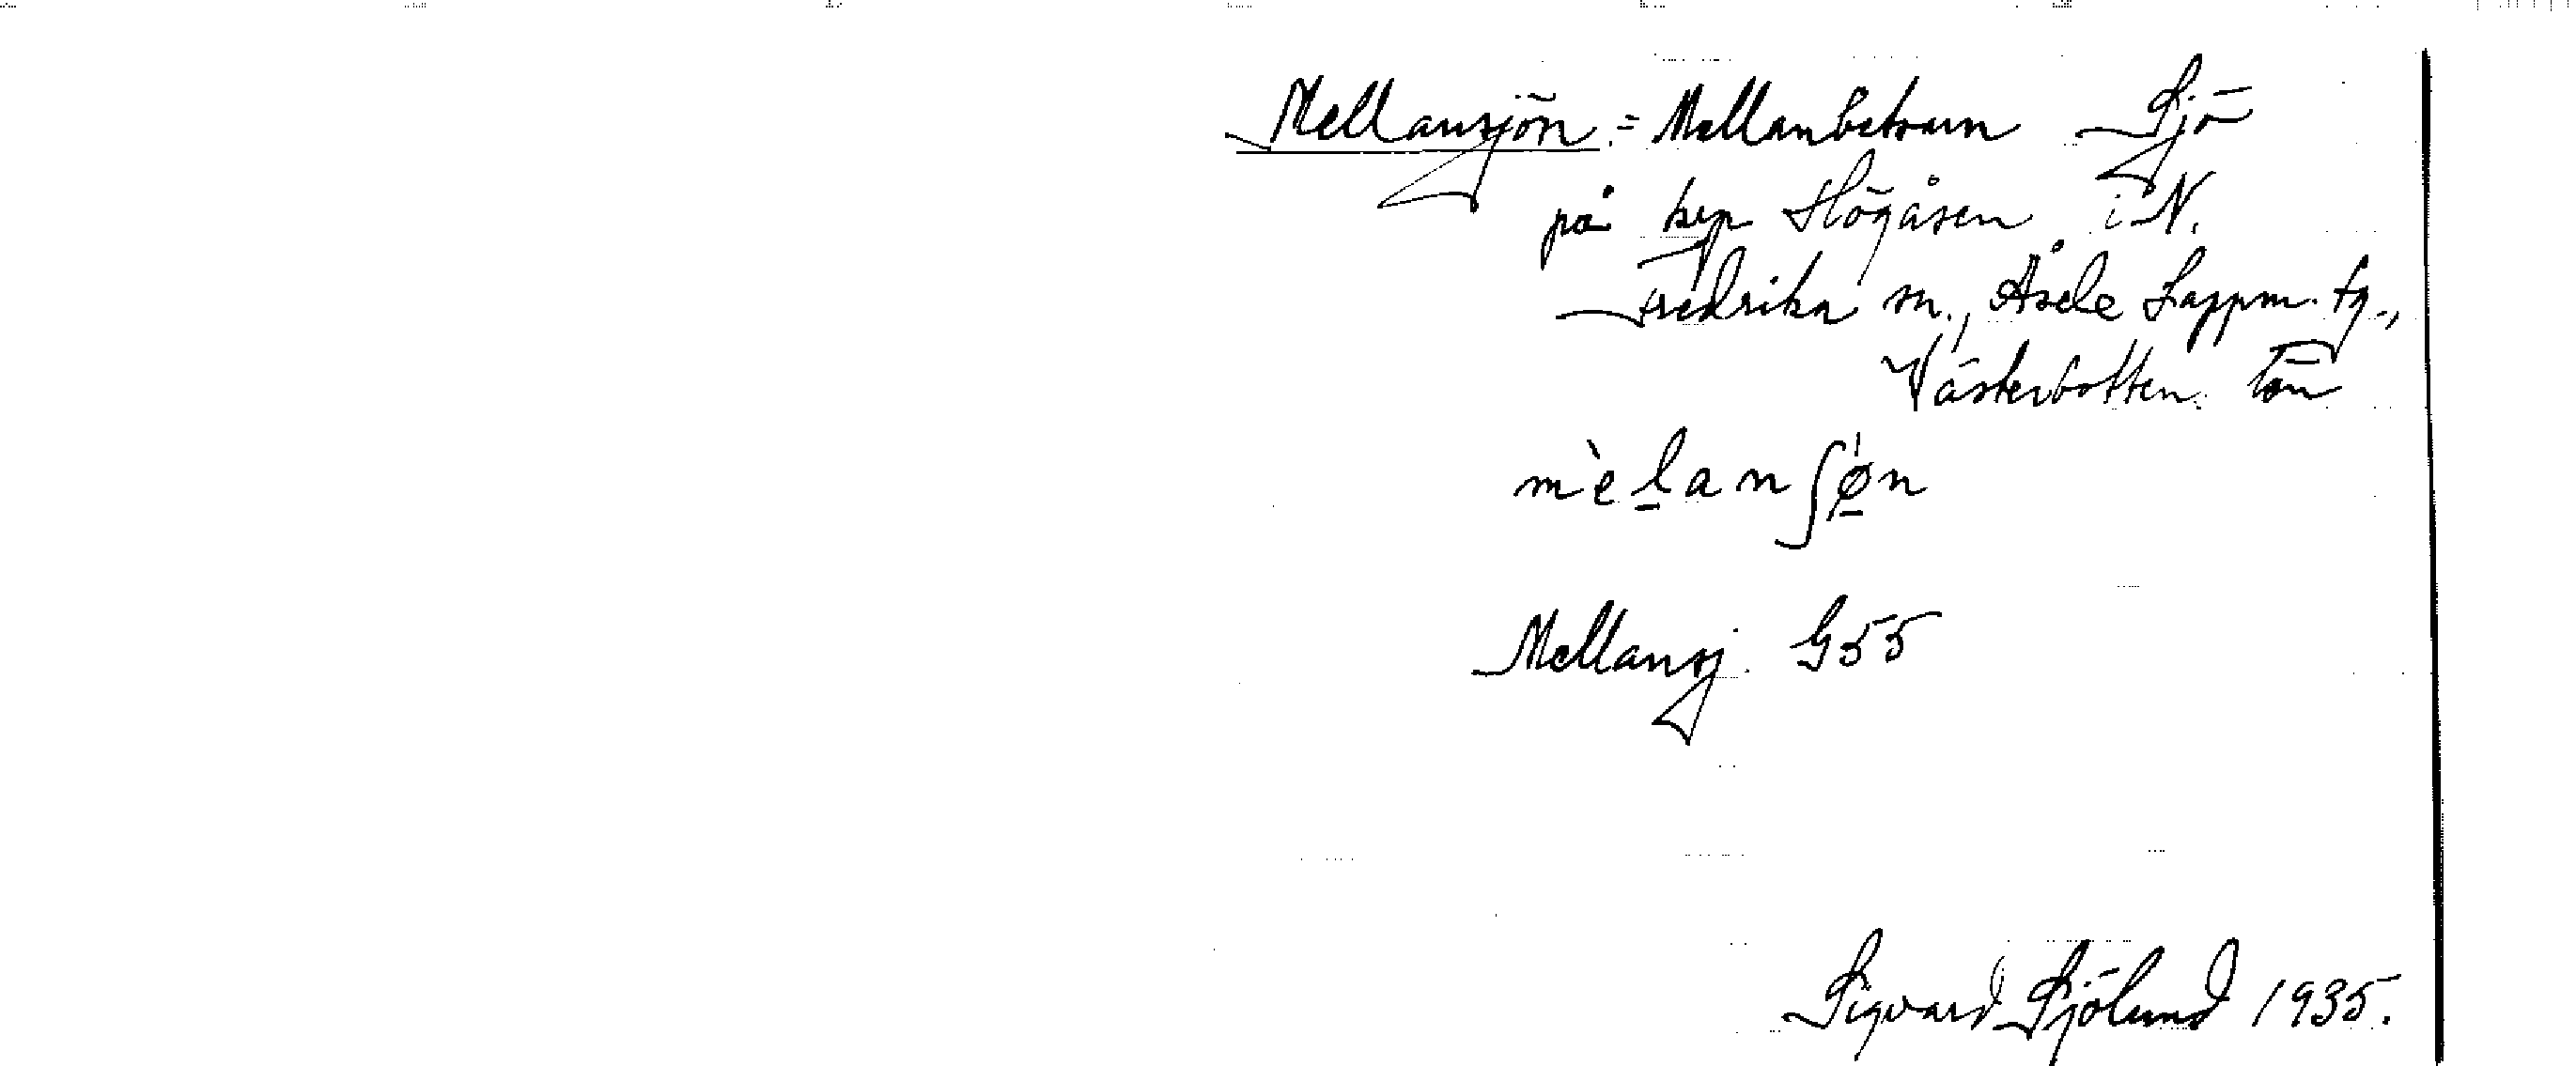 Mellansjön = Mellanbetsarn Sjö
på kkp Högåsen i N.
Fredrika sn., Åsele Lappm. tg.,
Västerbotten. län
mèlanʃøn
Mellansj. G55
Sigvard Sjölund 1935.